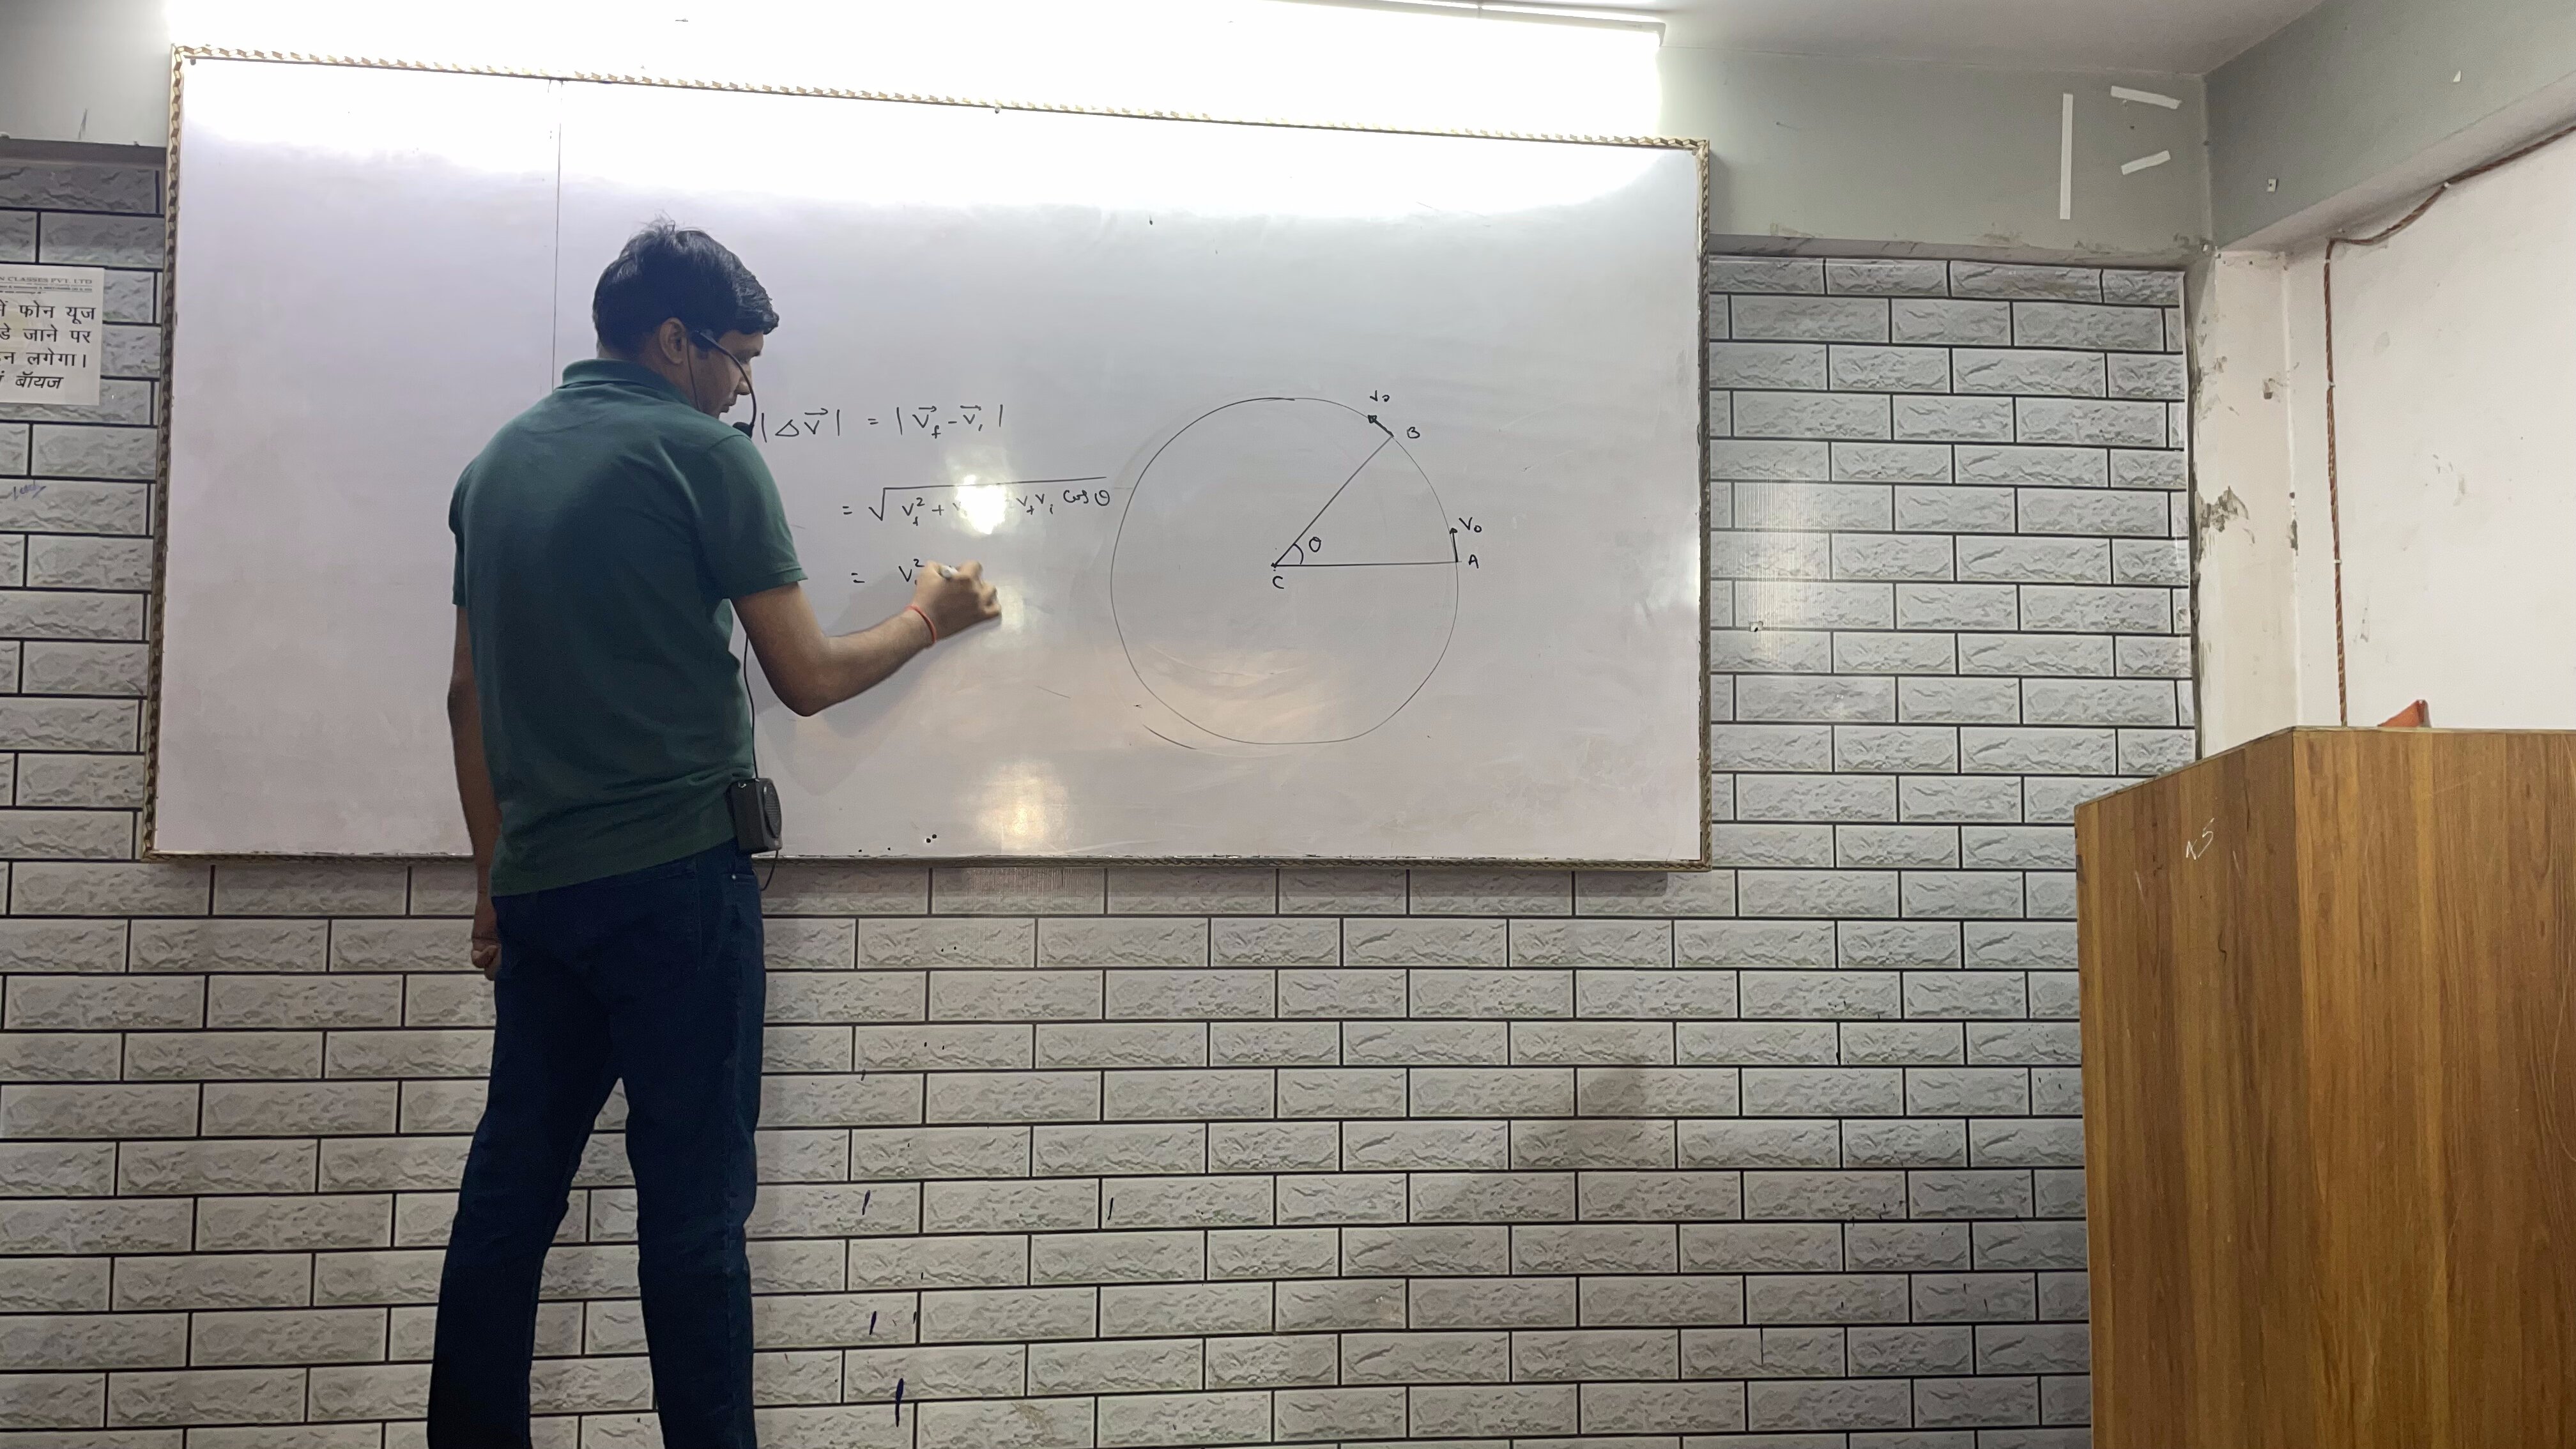 CLASSES PVT. LTD
में फोन यूज
जाने पर
लगेगा।
बॉयज
|Δv⃗| = |v⃗f - v⃗i|
= √ vf² + vf vi cos θ
= v²
v₀
B
v₀
θ
A
C